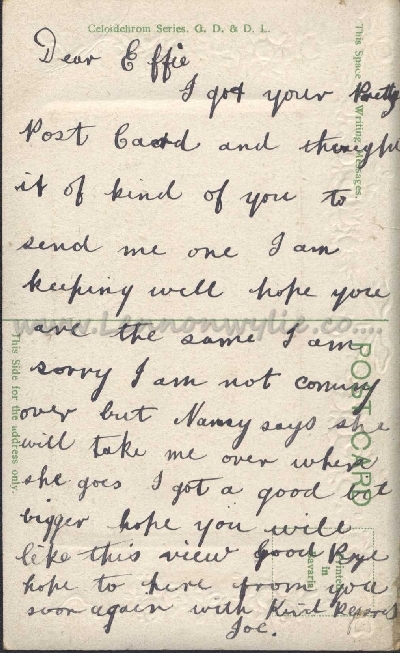 Celoidchrom Series. G. D. & D. L.
Dear Effie
I got your Pretty
Post Caord and thought
it of kind of you to
send me one I am
keeping well hope you
are the same I am
sorry I am not coming
over but Nancy says she
will take me over when
she goes I got a good bit
bigger hope you will
like this view Good Bye
hope to here from you
soon again with Kind Regards
Joe.
This Space Writing Messages.
This Side for the address only.
POST CARD
Printed
in
Bavaria
www.Lennonwylie.co....